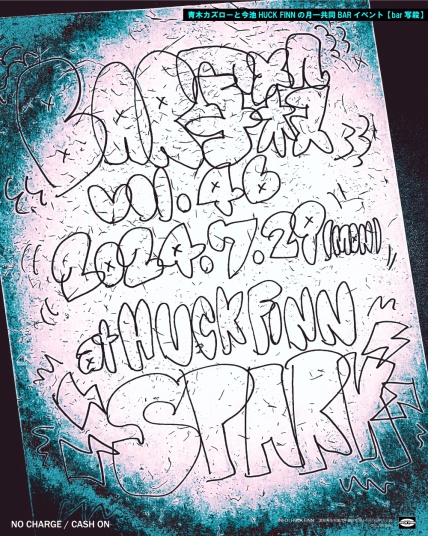 青木カズローと今池 HUCK FINN の月一共同 BAR イベント【bar 写殺】
BAR写殺
vol.46
2024.7.29(MON)
at HUCK FiNN
SPARK
NO CHARGE / CASH ON